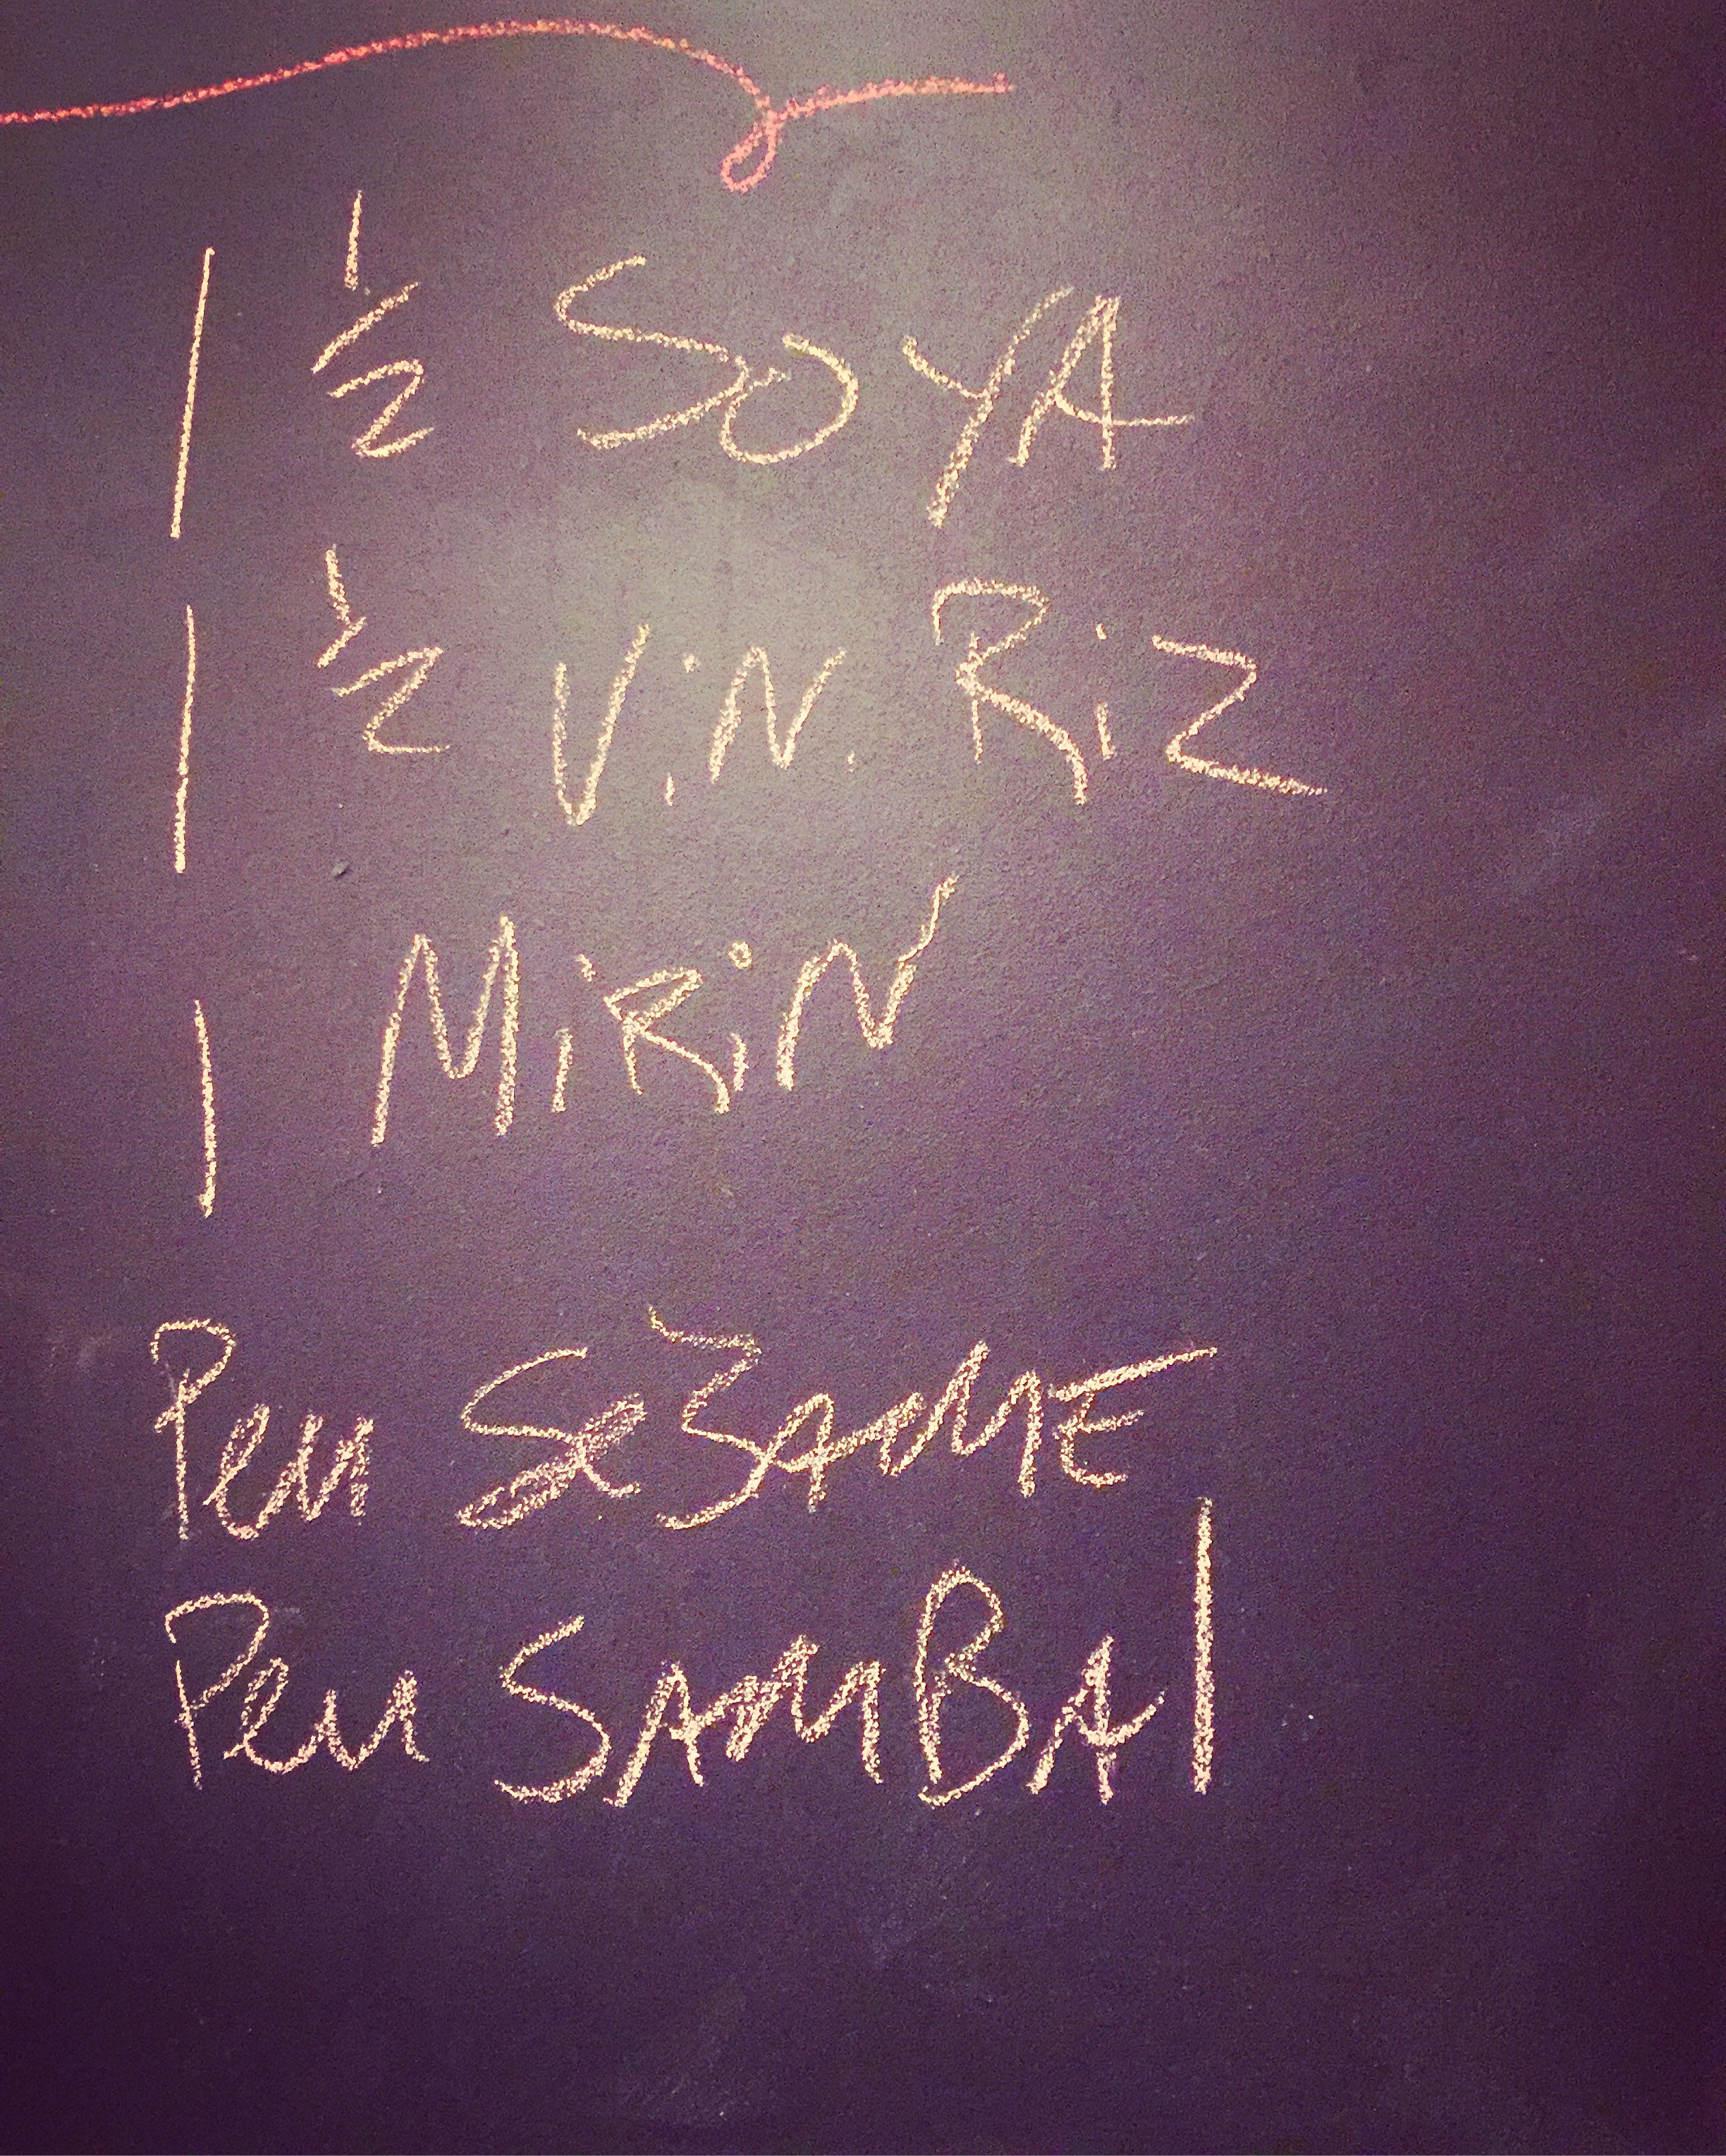 1 1/2 SOYA
1 1/2 ViN. RiZ
1 MiRiN
Peu SeSAME
Peu SAMBAl